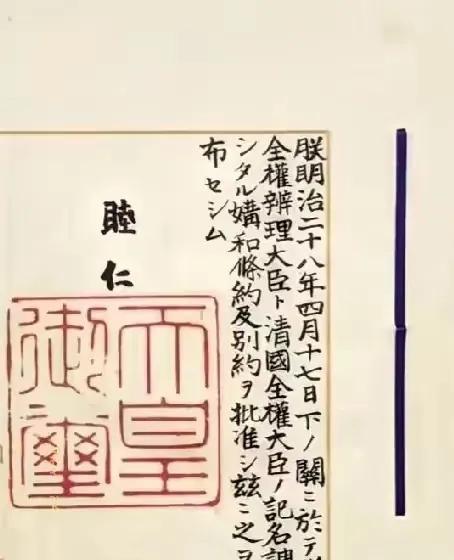 朕明治二十八年四月十七日下ノ關ニ於テ
全權辨理大臣ト清國全權大臣ノ記名調
シタル媾和條約及別約ヲ批准シ茲ニ之ヲ
布セシム
睦仁
天皇
御璽